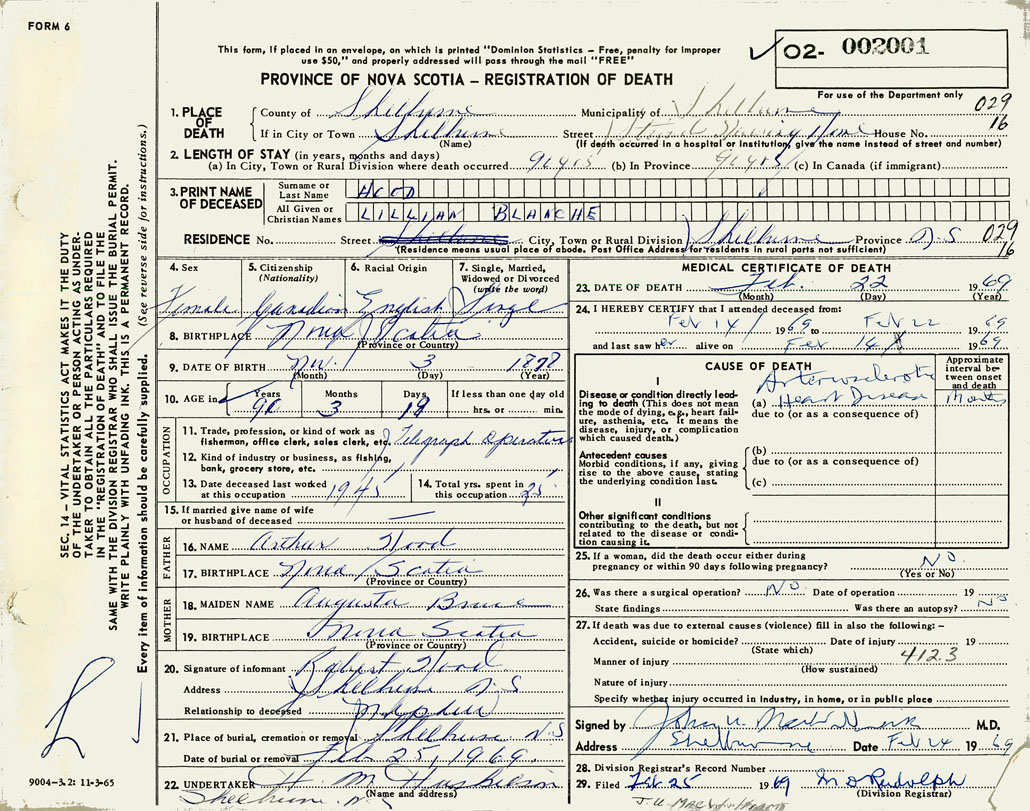 FORM 6
This form, if placed in an envelope, on which is printed "Dominion Statistics – Free, penalty for improper
use $50," and properly addressed will pass through the mail "FREE"
PROVINCE OF NOVA SCOTIA – REGISTRATION OF DEATH
✓ 02- 002001
For use of the Department only
029
16
1. PLACE OF DEATH
County of Shelburne Municipality of Shelburne
If in City or Town Shelburne Street Nursing Home House No.
(Name) (If death occurred in a hospital or institution, give the name instead of street and number)
2. LENGTH OF STAY (in years, months and days)
(a) In City, Town or Rural Division where death occurred 90 yrs (b) In Province 90 yrs (c) In Canada (if immigrant)
3. PRINT NAME OF DECEASED
Surname or Last Name HOOD
All Given or Christian Names LILLIAN BLANCHE
RESIDENCE No. Street Shelburne City, Town or Rural Division Shelburne Province N.S
029
16
(Residence means usual place of abode. Post Office Address for residents in rural parts not sufficient)
4. Sex Female
5. Citizenship (Nationality) Canadian
6. Racial Origin English
7. Single, Married, Widowed or Divorced (write the word) Single
8. BIRTHPLACE Nova Scotia
(Province or Country)
9. DATE OF BIRTH Nov. 3 1878
(Month) (Day) (Year)
10. AGE in Years 90 Months 3 Days 19 If less than one day old
hrs. or min.
OCCUPATION
11. Trade, profession, or kind of work as
fisherman, office clerk, sales clerk, etc. Telegraph Operator
12. Kind of industry or business, as fishing,
bank, grocery store, etc.
13. Date deceased last worked
at this occupation 1945
14. Total yrs. spent in
this occupation 25
15. If married give name of wife
or husband of deceased —
FATHER
16. NAME Arthur Hood
17. BIRTHPLACE Nova Scotia
(Province or Country)
MOTHER
18. MAIDEN NAME Augusta Bruce
19. BIRTHPLACE Nova Scotia
(Province or Country)
20. Signature of informant Robert Hood
Address Shelburne N.S
Relationship to deceased Nephew
21. Place of burial, cremation or removal Shelburne N.S
Date of burial or removal Feb 25, 1969
22. UNDERTAKER H. M. Huskilson
Shelburne N.S
(Name and address)
MEDICAL CERTIFICATE OF DEATH
23. DATE OF DEATH Feb. 22 1969
(Month) (Day) (Year)
24. I HEREBY CERTIFY that I attended deceased from:
Feb 14 1969 to Feb 22 1969
and last saw her alive on Feb 14 1969
CAUSE OF DEATH
Approximate interval between onset and death
I
Disease or condition directly leading to death (This does not mean
the mode of dying, e.g., heart failure, asthenia, etc. It means the
disease, injury, or complication
which caused death.)
Arteriosclerotic
(a) Heart Disease
due to (or as a consequence of)
Antecedent causes
Morbid conditions, if any, giving
rise to the above cause, stating
the underlying condition last.
(b)
due to (or as a consequence of)
(c)
II
Other significant conditions
contributing to the death, but not
related to the disease or condition causing it.
25. If a woman, did the death occur either during
pregnancy or within 90 days following pregnancy? No
(Yes or No)
26. Was there a surgical operation? No Date of operation 19
State findings Was there an autopsy? No
27. If death was due to external causes (violence) fill in also the following: –
Accident, suicide or homicide? Date of injury 19
(State which) 412.3
Manner of injury
(How sustained)
Nature of injury
Specify whether injury occurred in Industry, in home, or in public place
Signed by M.D.
Address Shelburne Date Feb 24 1969
28. Division Registrar's Record Number
29. Filed Feb 25 1969 M D Rudolph
(Division Registrar)
SEC. 14 – VITAL STATISTICS ACT MAKES IT THE DUTY
OF THE UNDERTAKER OR PERSON ACTING AS UNDER-
TAKER TO OBTAIN ALL THE PARTICULARS REQUIRED
IN THE "REGISTRATION OF DEATH" AND TO FILE THE
SAME WITH THE DIVISION REGISTRAR WHO SHALL ISSUE THE BURIAL PERMIT.
WRITE PLAINLY WITH UNFADING INK. THIS IS A PERMANENT RECORD.
Every item of information should be carefully supplied. (See reverse side for instructions.)
9004–3.2: 11-3-65